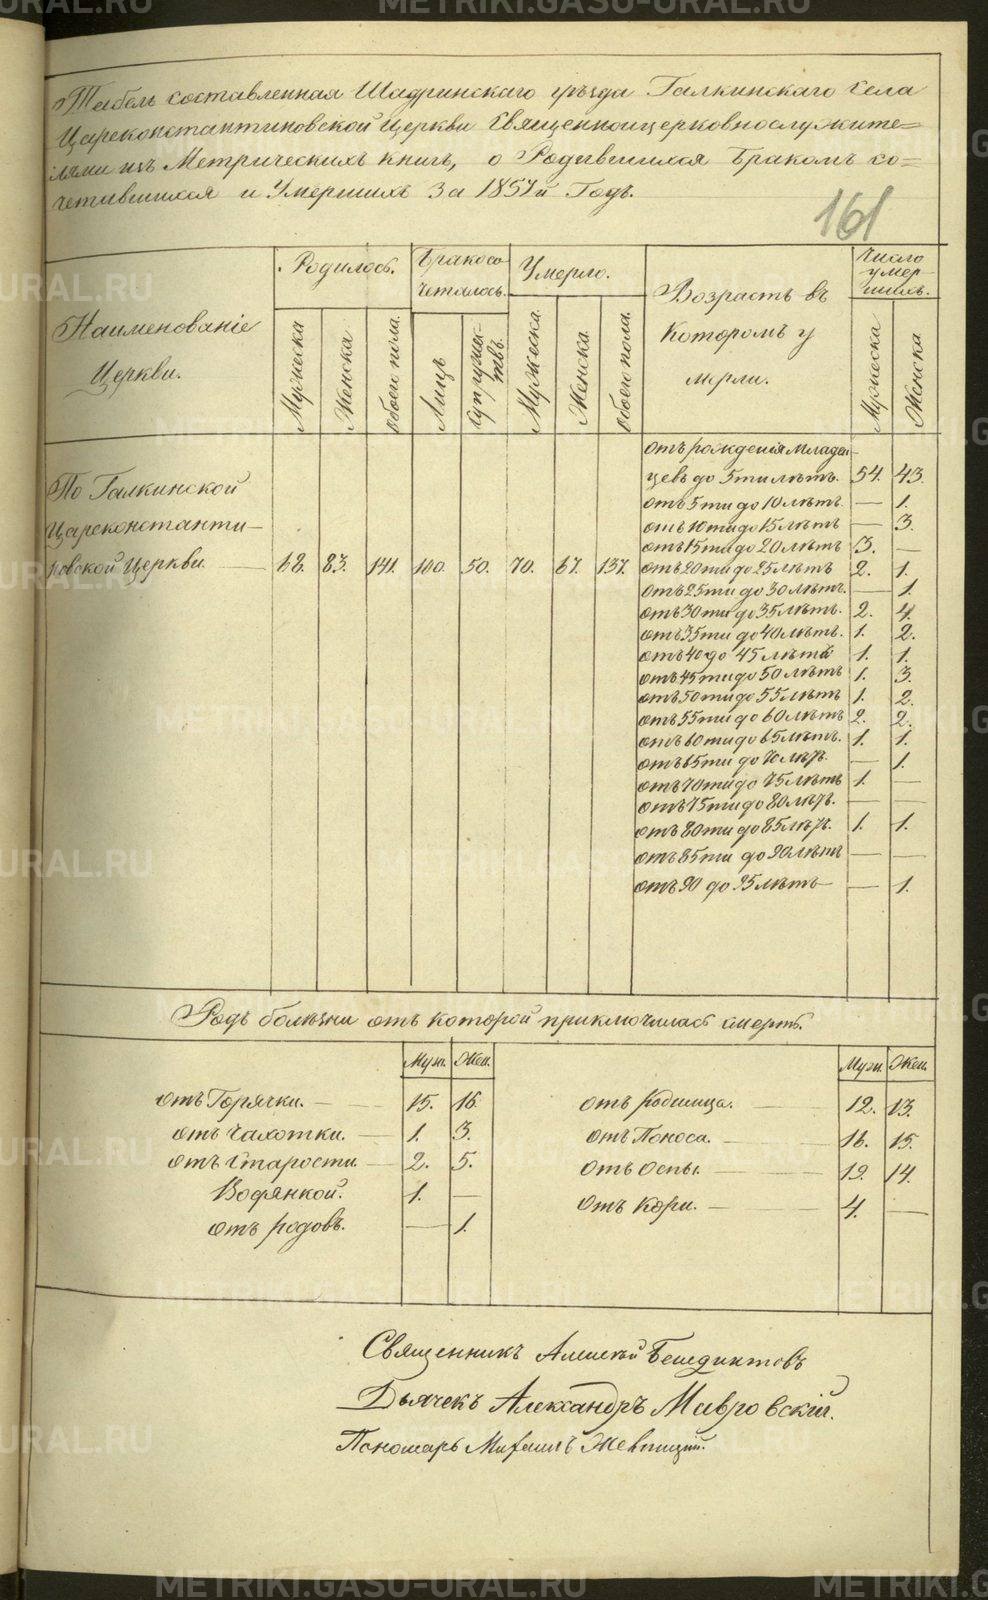 Табель составленная Шадринскаго уѣзда Галкинскаго Села
Цареконстантиновской Церкви Священноицерковнослужите=
лями изъ Метрическихъ книгъ, о Родившихся Бракомъ со=
четавшихся и Умершихъ за 1857й Годъ.
161
Наименованіе
Церкви.
Родилось.
Мужеска
Женска
Обоего пола.
Бракосо
четалось.
Лицъ
Супружес-
твъ.
Умерло.
Мужеска
Женска.
Обоего пола.
Возрастъ въ
Которомъ у
мерли.
Число
умер-
шихъ.
Мужеска
Женска
По Галкинской
Цареконстанти-
новской Церкви. 83. 141. 100. 50. 70. 67. 137.
отъ рожденія Младен-
цевъ до 5ти лѣтъ. 54. 43.
отъ 5ти до 10 лѣтъ. — 1.
отъ 10ти до 15 лѣтъ — 3.
отъ 15ти до 20 лѣтъ 3. —
отъ 20ти до 25 лѣтъ 2. 1.
отъ 25ти до 30 лѣтъ. — 1.
отъ 30ти до 35 лѣтъ. 2. 4.
отъ 35ти до 40 лѣтъ. 1. 2.
отъ 40 до 45 лѣтъ 1. 1.
отъ 45ти до 50 лѣтъ 1. 3.
отъ 50ти до 55 лѣтъ 1. 2.
отъ 55ти до 60 лѣтъ 2. 2.
отъ 60ти до 65 лѣтъ. 1. 1.
отъ 65ти до 70 лѣтъ. — 1.
отъ 70ти до 75 лѣтъ 1. —
отъ 75ти до 80 лѣтъ. — —
отъ 80ти до 85 лѣтъ. 1. 1.
отъ 85ти до 90 лѣтъ — —
отъ 90 до 95 лѣтъ — — 1.
Родъ болѣзни отъ которой приключилась смерть.
Муж. Жен.
отъ Горячки. — 15. 16.
отъ Чахотки. — 1. 3.
отъ Старости — 2. 5.
Водянкой. 1. —
отъ родовъ. — 1.
Муж. Жен.
отъ Родимца. — 12. 13.
отъ Поноса. — 16. 15.
отъ Оспы. — 19. 14.
отъ Кори. — 4. —
Священникъ Алексѣй Бенедиктовъ
Дьячекъ Александръ Мавровскій.
Пономарь Михаилъ
METRIKI.GASU-URAL.RU